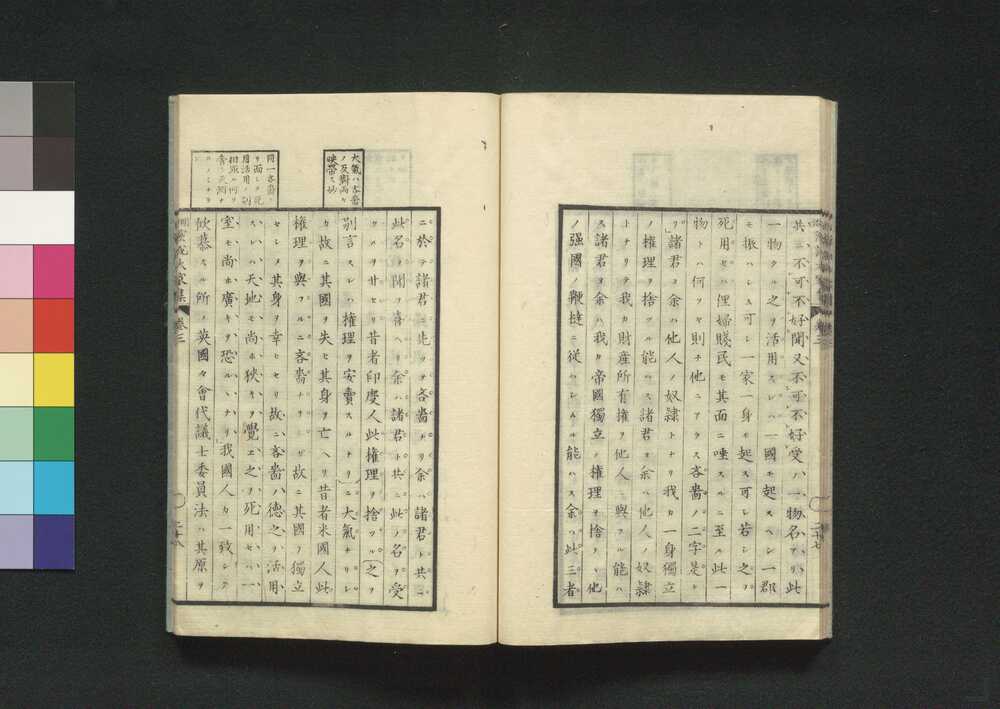 共ニ不可不好聞又不可不好受ハ一物名アリ此
一物タル之ヲ活用スレハ一國モ起スヘシ一郡
モ振ハシム可シ一家一身モ起ス可シ若シ之ヲ
死用セハ俚婦賤民モ其面ニ唾スルニ至ル此一
物トハ何ソヤ則チ他ニアラス吝嗇ノ二字是レ
ナリ諸君ヨ余ハ他人ノ奴隷トナリ我カ一身獨立
ノ權理ヲ捨ツル能ハス諸君ヨ余ハ他人ノ奴隷
トナリテ我カ財産所有權ヲ他人ニ與フル能ハ
ス諸君ヨ余ハ我カ帝國獨立ノ權理ヲ捨テヽ他
ノ强國ノ鞭撻ニ從ハシムル能ハス余ハ此三者
卷三
二十七
ニ於テ諸君ニ先ヲ吝嗇ナリ余ハ諸君ト共ニ
此名ヲ聞クヲ喜ヘリ余ハ諸君ト共ニ此ノ名ヲ受
クルヲ甘セリ昔者印度人此權理ヲ捨ツル(之ヲ
別言スレハ權理ヲ安賣スルトナリ)ニ大氣ナリシ
カ故ニ其國ヲ失ヒ其身ヲ亡ヘリ昔者米國人此
權理ヲ與フルニ吝嗇ナリシガ故ニ其國ヲ獨立
セシメ其身ヲ幸セセリ故ニ吝嗇ハ德之ヲ活用
スレハ天地モ尚ホ狹キヲ覺エ之ヲ死用セハ一
室モ尚ホ廣キヲ恐ルヽナリ我國人カ一致シテ
欽慕スル所ノ英國々會代議士委員法ハ其原ヲ
大氣ハ吝嗇
ノ反對而
映帶シ妙
同一吝嗇
卷三
二十八